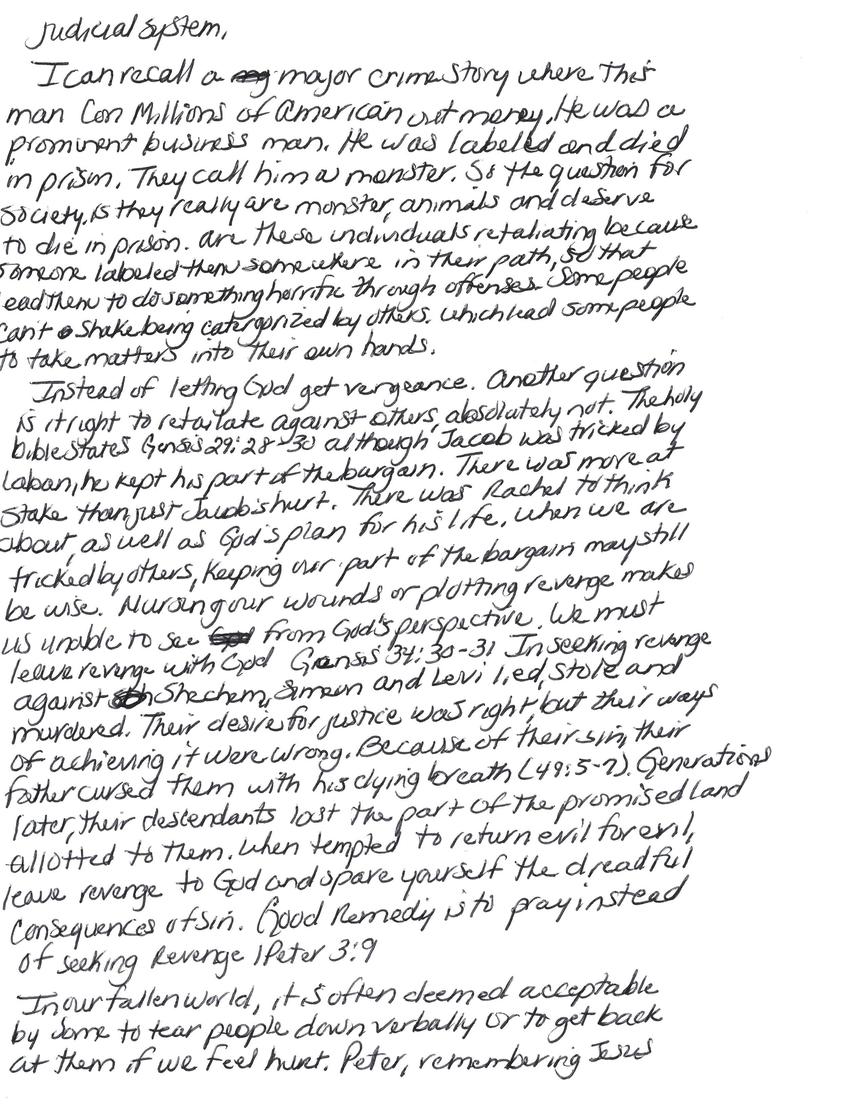 Judicial System,
I can recall a major crime story where This
man Con Millions of American out money. He was a
prominent business man. He was labeled and died
in prison. They call him a monster. So the question for
society. is they really are monster, animals and deserve
to die in prison. are these individuals retaliating because
someone labeled them somewhere in their path, so that
lead them to do something horrific through offenses. Some people
can't shake being catergorized by others. which lead some people
to take matters into their own hands.
Instead of letting God get vergeance. Another question
is it right to retailate against others, absolutely not. The holy
bible states Gensis 29:28-30 although Jacob was tricked by
Laban, he kept his part of the bargain. There was more at
stake than just Jacob's hurt. There was Rachel to think
about, as well as God's plan for his life. When we are
tricked by others, keeping our part of the bargain may still
be wise. Nursing our wounds or plotting revenge makes
us unable to see from God's perspective. We must
leave revenge with God Gensis 34:30-31 In seeking revenge
against Shechem, Simeon and Levi lied, stole and
murdered. Their desire for justice was right, but their ways
of achieving it were wrong. Because of their sin, their
father cursed them with his dying breath (49:5-7). Generations
later, their descendants lost the part of the promised land
allotted to them. When tempted to return evil for evil,
leave revenge to God and spare yourself the dreadful
consequences of sin. Good Remedy is to pray instead
of seeking Revenge 1Peter 3:9
In our fallen world, it is often deemed acceptable
by some to tear people down verbally or to get back
at them if we feel hurt. Peter, remembering Jesus